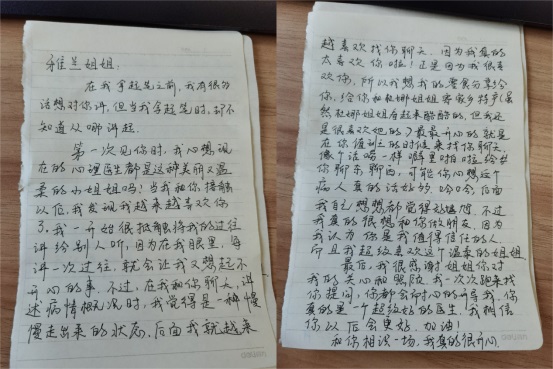 雅兰姐姐:
在我拿起笔之前,我有很多
话想对你讲,但当我拿起笔时,却不
知道从哪讲起.
第一次见你时,我心想现
在的心理医生都是这种美丽又温
柔的小姐姐吗!当我和你接触
以后,我发现我越来越喜欢你
了.我一开始很抵触将我的过往
讲给别人听,因为在我眼里,每
讲一次过往,就会让我又想起不
开心的事.不过,在我和你聊天,讲
述病情概况时,我觉得是一种慢
慢走出来的状态,后面我就越来
越喜欢找你聊天.因为我真的
太喜欢你啦!正是因为我很喜
欢你,所以我想我的零食分享给
你,给你和杜娜姐姐寄家乡特产(虽
然杜娜姐姐看起来酷酷的,但我还
是很喜欢她的)最最开心的就是
在你值班的时候来找你聊天,
像个话唠一样噼里啪啦给你
聊东聊西,可能你心想这个
病人真的话好多,哈哈,后面
我自己想想都觉得好尴尬.不过
我真的很想和你做朋友,因为
我认为你是我值得信任的人
而且我超级喜欢这个温柔的姐姐
最后,我很感谢姐姐你对
我的关心和照顾,我一次次跑来找
你提问,你都会耐心的开导我,你
真的是一个超级好的医生,我相信
你以后会更好,加油!
和你相识一场,我真的很开心.